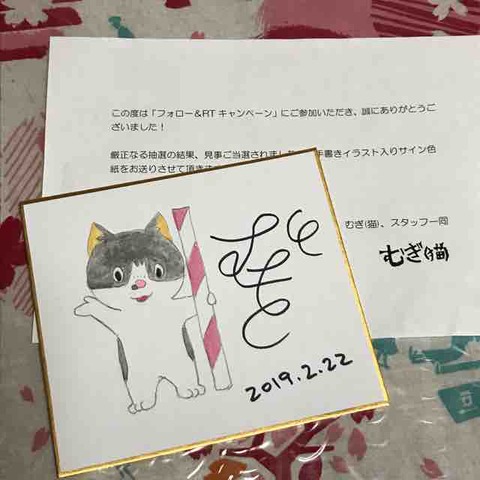 この度は「フォロー＆RTキャンペーン」にご参加いただき、誠にありがとうご
ざいました！
厳正なる抽選の結果、見事ご当選されまし 手書きイラスト入りサイン色
紙をお送りさせて頂き
むぎ(猫)、スタッフ一同
むぎ(猫)
2019.2.22